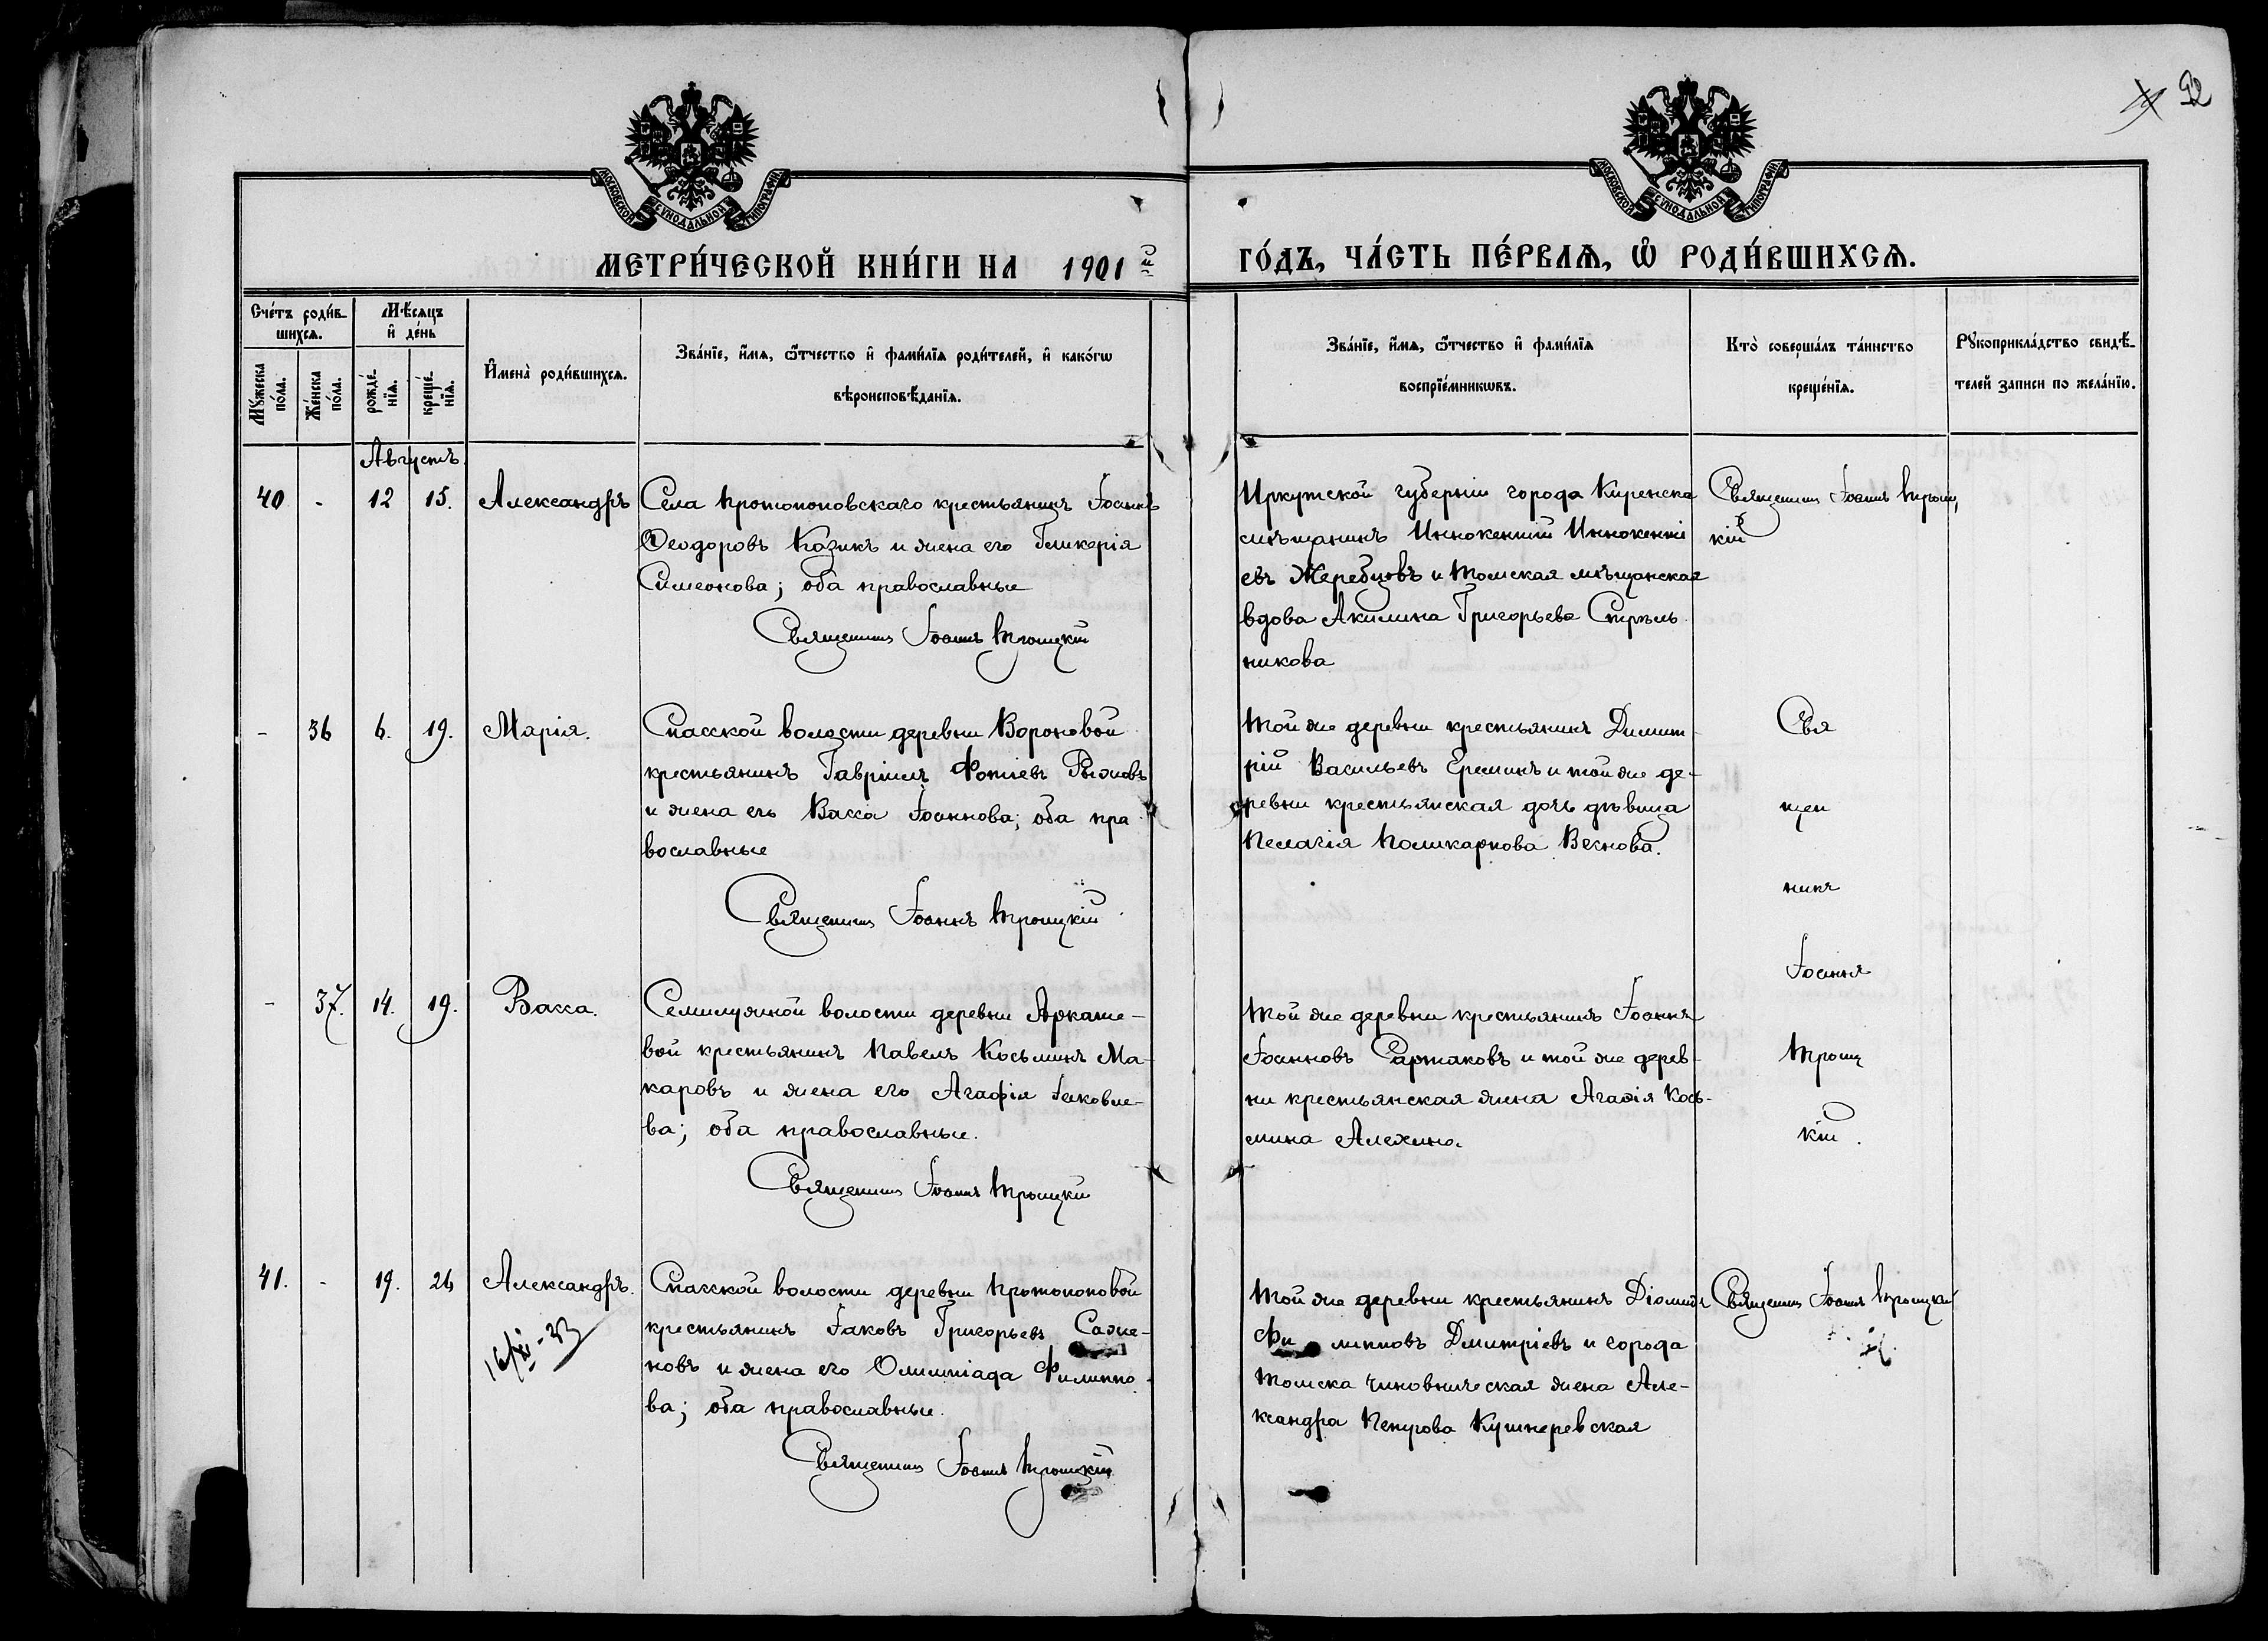 92
МОСКОВСКОЙ СѴНОДАЛЬНОЙ ТИПОГРАФІИ
МОСКОВСКОЙ СѴНОДАЛЬНОЙ ТИПОГРАФІИ
МЕТРИ́ЧЕСКОЙ КНИ́ГИ НА 1901 ГО́ДЪ, ЧА́СТЬ ПЕ́РВАѦ, Ѽ РОДИ́ВШИХСѦ.
Сче́тъ роди́в-
шихсѧ.
Мꙋ́жеска
по́ла.
Же́нска
по́ла.
Мѣ́сяцъ
и҆ де́нь
рожде́-
нїѧ.
креще́-
нїѧ.
И҆мена̀ роди́вшихсѧ.
Зва́нїе, и҆́мѧ, ѻ҆́тчество и҆ фами́лїѧ роди́телей, и҆ како́гѡ
вѣроисповѣ́данїѧ.
Зва́нїе, и҆́мѧ, ѻ҆́тчество и҆ фами́лїѧ
воспрїе́мникѡвъ.
Кто̀ соверша́лъ та́инство
креще́нїѧ.
Рꙋкоприкла́дство свидѣ́-
телей записи по жела́нїю.
Августъ
40 - 12 15. Александръ
Села Протопоповскаго крестьянинъ Іоаннъ
Ѳеодоровъ Казикъ и жена его Гликерія
Симеонова; оба православные
Священникъ Іоаннъ Троицкій
Иркутской губерніи города Киренска
мѣщанинъ Иннокентій Иннокенті
евъ Жеребцовъ и Томская мѣщанская
вдова Акилина Григорьева Стрѣль
никова
Священникъ Іоаннъ Троиц
кій
- 36 6. 19. Марія.
Спасской волости деревни Вороновой
крестьянинъ Гавріилъ Фотіевъ Рыжовъ
и жена его Васса Іоаннова; оба пра
вославные
Священникъ Іоаннъ Троицкій
Той же деревни крестьянинъ Димит
рій Васильевъ Ереминъ и той же де-
ревни крестьянская дочь дѣвица
Пелагія Поликарпова Векнова.
Свя
щен
никъ
Іоаннъ
Троиц
кій.
- 37. 14. 19. Васса.
Семилужной волости деревни Аркаше-
вой крестьянинъ Павелъ Косьминъ Ма-
каровъ и жена его Агафія Іаковле-
ва; оба православные.
Священникъ Іоаннъ Троицкій
Той же деревни крестьянинъ Іоаннъ
Іоанновъ Сартаковъ и той же дерев-
ни крестьянская жена Агафія Кось-
мина Алехина
41. - 19. 26 Александръ.
16/XI-33
Спасской волости деревни Протопоповой
крестьянинъ Іаковъ Григорьевъ Саже-
новъ и жена его Олимпіада Филиппо-
ва; оба православные.
Священникъ Іоаннъ Троицкій
Той же деревни крестьянинъ Діомидъ
Фи липповъ Дмитріевъ и города
Томска чиновническая жена Але-
ксандра Петрова Кушнеревская
Священникъ Іоаннъ Троицкій